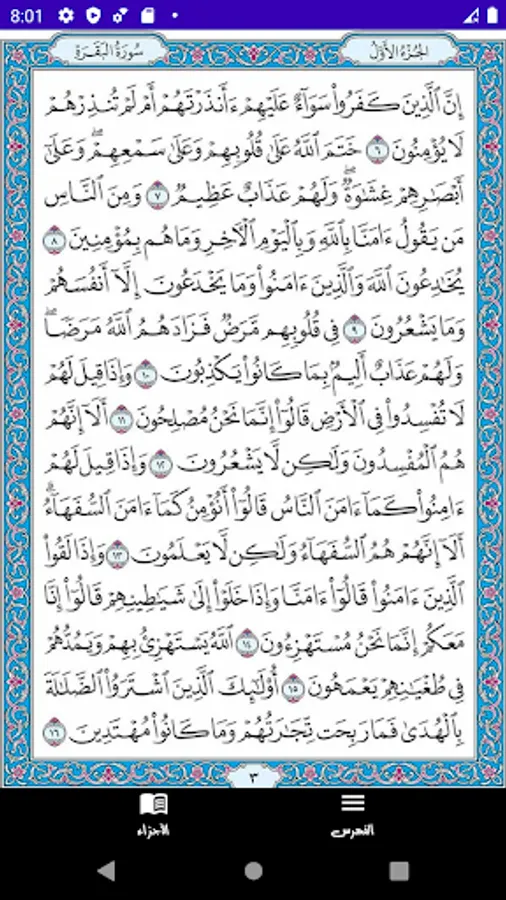 8:01
الجُزْءُ الأَوَّلُ
سُورَةُ البَقَرَةِ
إِنَّ ٱلَّذِينَ كَفَرُوا۟ سَوَآءٌ عَلَيْهِمْ ءَأَنذَرْتَهُمْ أَمْ لَمْ تُنذِرْهُمْ
لَا يُؤْمِنُونَ ٦ خَتَمَ ٱللَّهُ عَلَىٰ قُلُوبِهِمْ وَعَلَىٰ سَمْعِهِمْ ۖ وَعَلَىٰٓ
أَبْصَـٰرِهِمْ غِشَـٰوَةٌ ۖ وَلَهُمْ عَذَابٌ عَظِيمٌ ٧ وَمِنَ ٱلنَّاسِ
مَن يَقُولُ ءَامَنَّا بِٱللَّهِ وَبِٱلْيَوْمِ ٱلْـَٔاخِرِ وَمَا هُم بِمُؤْمِنِينَ ٨
يُخَـٰدِعُونَ ٱللَّهَ وَٱلَّذِينَ ءَامَنُوا۟ وَمَا يَخْدَعُونَ إِلَّآ أَنفُسَهُمْ
وَمَا يَشْعُرُونَ ٩ فِى قُلُوبِهِم مَّرَضٌ فَزَادَهُمُ ٱللَّهُ مَرَضًا ۖ
وَلَهُمْ عَذَابٌ أَلِيمٌۢ بِمَا كَانُوا۟ يَكْذِبُونَ ١٠ وَإِذَا قِيلَ لَهُمْ
لَا تُفْسِدُوا۟ فِى ٱلْأَرْضِ قَالُوٓا۟ إِنَّمَا نَحْنُ مُصْلِحُونَ ١١ أَلَآ إِنَّهُمْ
هُمُ ٱلْمُفْسِدُونَ وَلَـٰكِن لَّا يَشْعُرُونَ ١٢ وَإِذَا قِيلَ لَهُمْ
ءَامِنُوا۟ كَمَآ ءَامَنَ ٱلنَّاسُ قَالُوٓا۟ أَنُؤْمِنُ كَمَآ ءَامَنَ ٱلسُّفَهَآءُ ۗ
أَلَآ إِنَّهُمْ هُمُ ٱلسُّفَهَآءُ وَلَـٰكِن لَّا يَعْلَمُونَ ١٣ وَإِذَا لَقُوا۟
ٱلَّذِينَ ءَامَنُوا۟ قَالُوٓا۟ ءَامَنَّا وَإِذَا خَلَوْا۟ إِلَىٰ شَيَـٰطِينِهِمْ قَالُوٓا۟ إِنَّا
مَعَكُمْ إِنَّمَا نَحْنُ مُسْتَهْزِءُونَ ١٤ ٱللَّهُ يَسْتَهْزِئُ بِهِمْ وَيَمُدُّهُمْ
فِى طُغْيَـٰنِهِمْ يَعْمَهُونَ ١٥ أُو۟لَـٰٓئِكَ ٱلَّذِينَ ٱشْتَرَوُا۟ ٱلضَّلَـٰلَةَ
بِٱلْهُدَىٰ فَمَا رَبِحَت تِّجَـٰرَتُهُمْ وَمَا كَانُوا۟ مُهْتَدِينَ ١٦
٣
الفهرس
الأجزاء